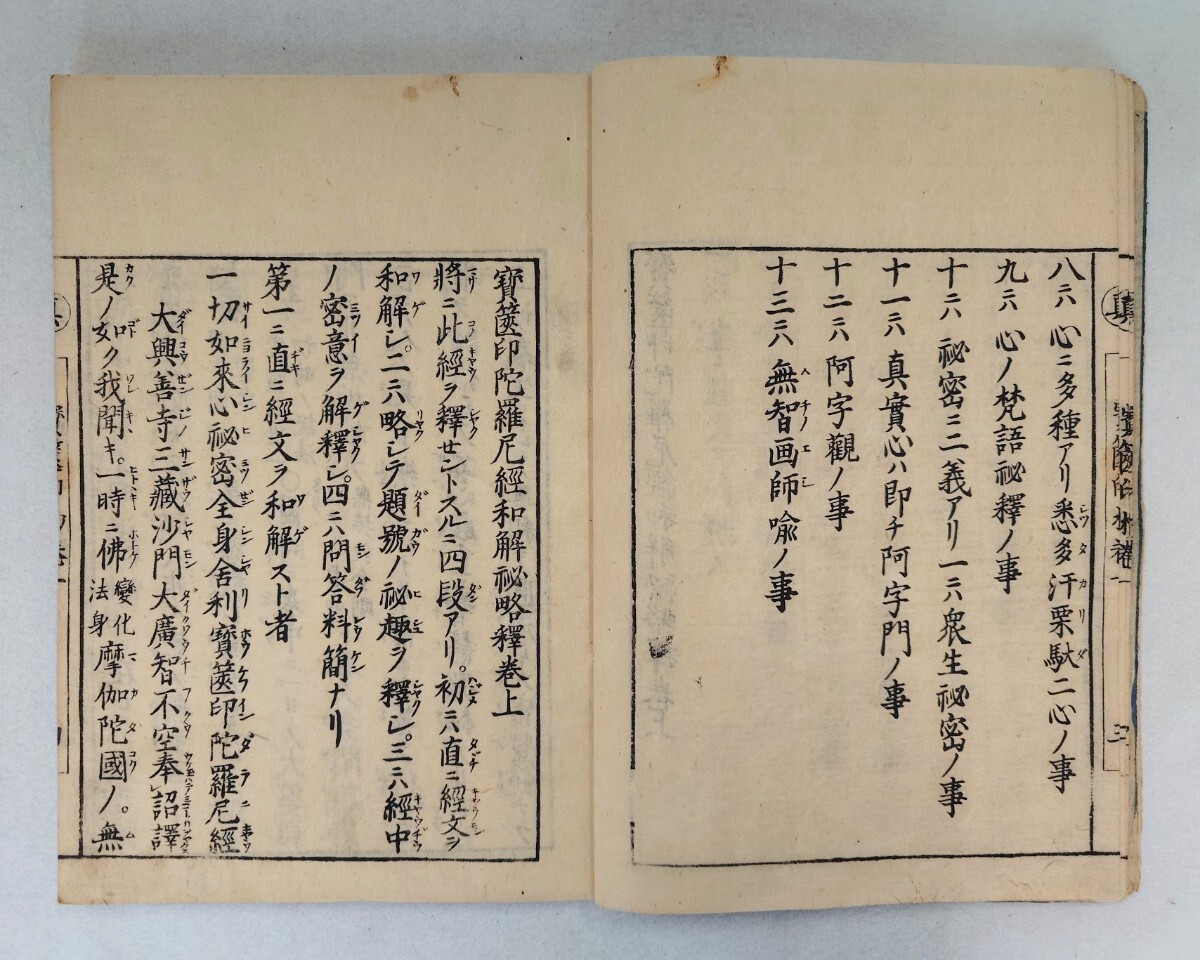 八ニハ心ニ多種アリ悉多汗栗馱二心ノ事
九ニハ心ノ梵語祕釋ノ事
十ニハ祕密ニ二義アリ一ニハ衆生祕密ノ事
十一ニハ真實心ハ即チ阿字門ノ事
十二ニハ阿字觀ノ事
十三ニハ無智画師喩ノ事
寶篋印陀羅尼經和解祕略釋卷上
將ニ此經ヲ釋セントスルニ四段アリ。初ニハ直ニ經文ヲ
和解シ。二ニハ略シテ題號ノ祕趣ヲ釋シ。三ニハ經中
ノ密意ヲ解釋シ。四ニハ問答料簡ナリ
第一ニ直ニ經文ヲ和解スト者
一切如來心祕密全身舍利寶篋印陀羅尼經
大興善寺三藏沙門大廣智不空奉詔譯
是ノ如ク我聞キ。一時ニ佛變化法身摩伽陀國ノ。無